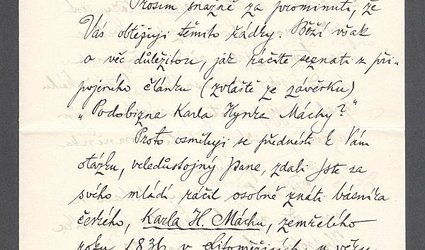 Prosím snažně za prominutí, že
Vás obtěžuji těmito řádky. Běží však
o věc důležitou, jak ráčíte seznati z při-
pojeného článku (zvláště ze závěrku)
"Podobizna Karla Hynka Máchy?"
Proto osměluji se přednésti k Vám
otázku, veledůstojný pane, zdali jste za
svého mládí ráčil osobně znáti básníka
českého, Karla H. Máchu, zemřelého
roku 1836 v Litoměřicích u věku